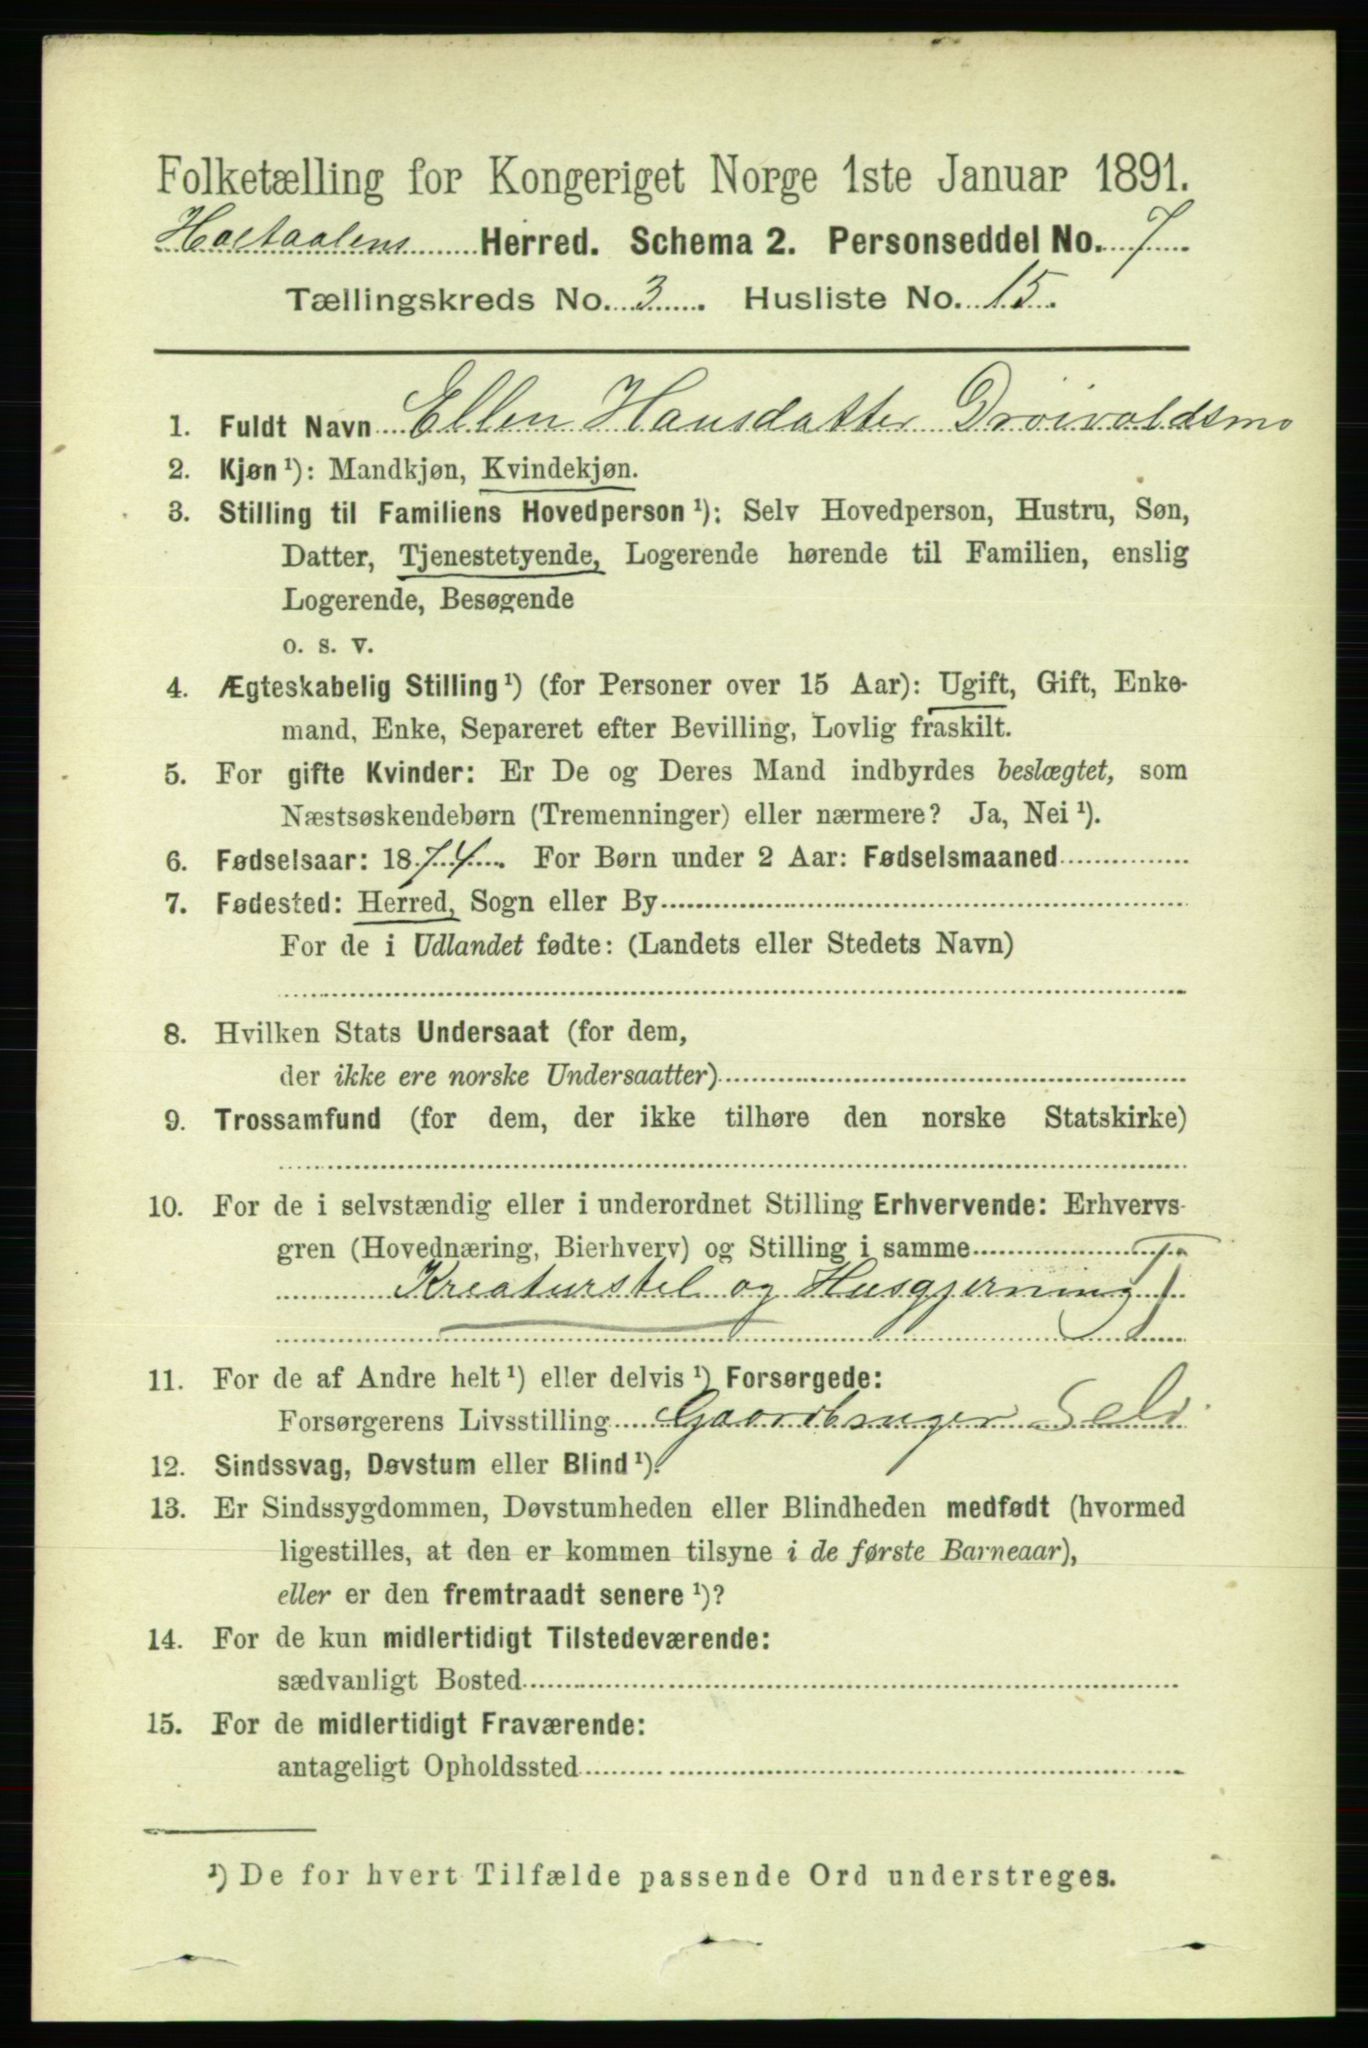 Folketælling for Kongeriget Norge 1ste Januar 1891.
Holtaalens Herred. Schema 2. Personseddel No. 7
Tællingskreds No. 3. Husliste No. 15.
1. Fuldt Navn Ellen Hansdatter Drøivoldsmo
2. Kjøn ¹): Mandkjøn, Kvindekjøn.
3. Stilling til Familiens Hovedperson ¹): Selv Hovedperson, Hustru, Søn,
Datter, Tjenestetyende, Logerende hørende til Familien, enslig
Logerende, Besøgende
o. s. v.
4. Ægteskabelig Stilling ¹) (for Personer over 15 Aar): Ugift, Gift, Enke-
mand, Enke, Separeret efter Bevilling, Lovlig fraskilt.
5. For gifte Kvinder: Er De og Deres Mand indbyrdes beslægtet, som
Næstsøskendebørn (Tremenninger) eller nærmere? Ja, Nei ¹).
6. Fødselsaar: 1874. For Børn under 2 Aar: Fødselsmaaned
7. Fødested: Herred, Sogn eller By
For de i Udlandet fødte: (Landets eller Stedets Navn)
8. Hvilken Stats Undersaat (for dem,
der ikke ere norske Undersaatter)
9. Trossamfund (for dem, der ikke tilhøre den norske Statskirke)
10. For de i selvstændig eller i underordnet Stilling Erhvervende: Erhvervs-
gren (Hovednæring, Bierhverv) og Stilling i samme T
Kreaturstel og Husgjerning
11. For de af Andre helt ¹) eller delvis ¹) Forsørgede:
Forsørgerens Livsstilling Gaardbruger Selv
12. Sindssvag, Døvstum eller Blind ¹).
13. Er Sindssygdommen, Døvstumheden eller Blindheden medfødt (hvormed
ligestilles, at den er kommen tilsyne i de første Barneaar),
eller er den fremtraadt senere ¹)?
14. For de kun midlertidigt Tilstedeværende:
sædvanligt Bosted
15. For de midlertidigt Fraværende:
antageligt Opholdssted
¹) De for hvert Tilfælde passende Ord understreges.